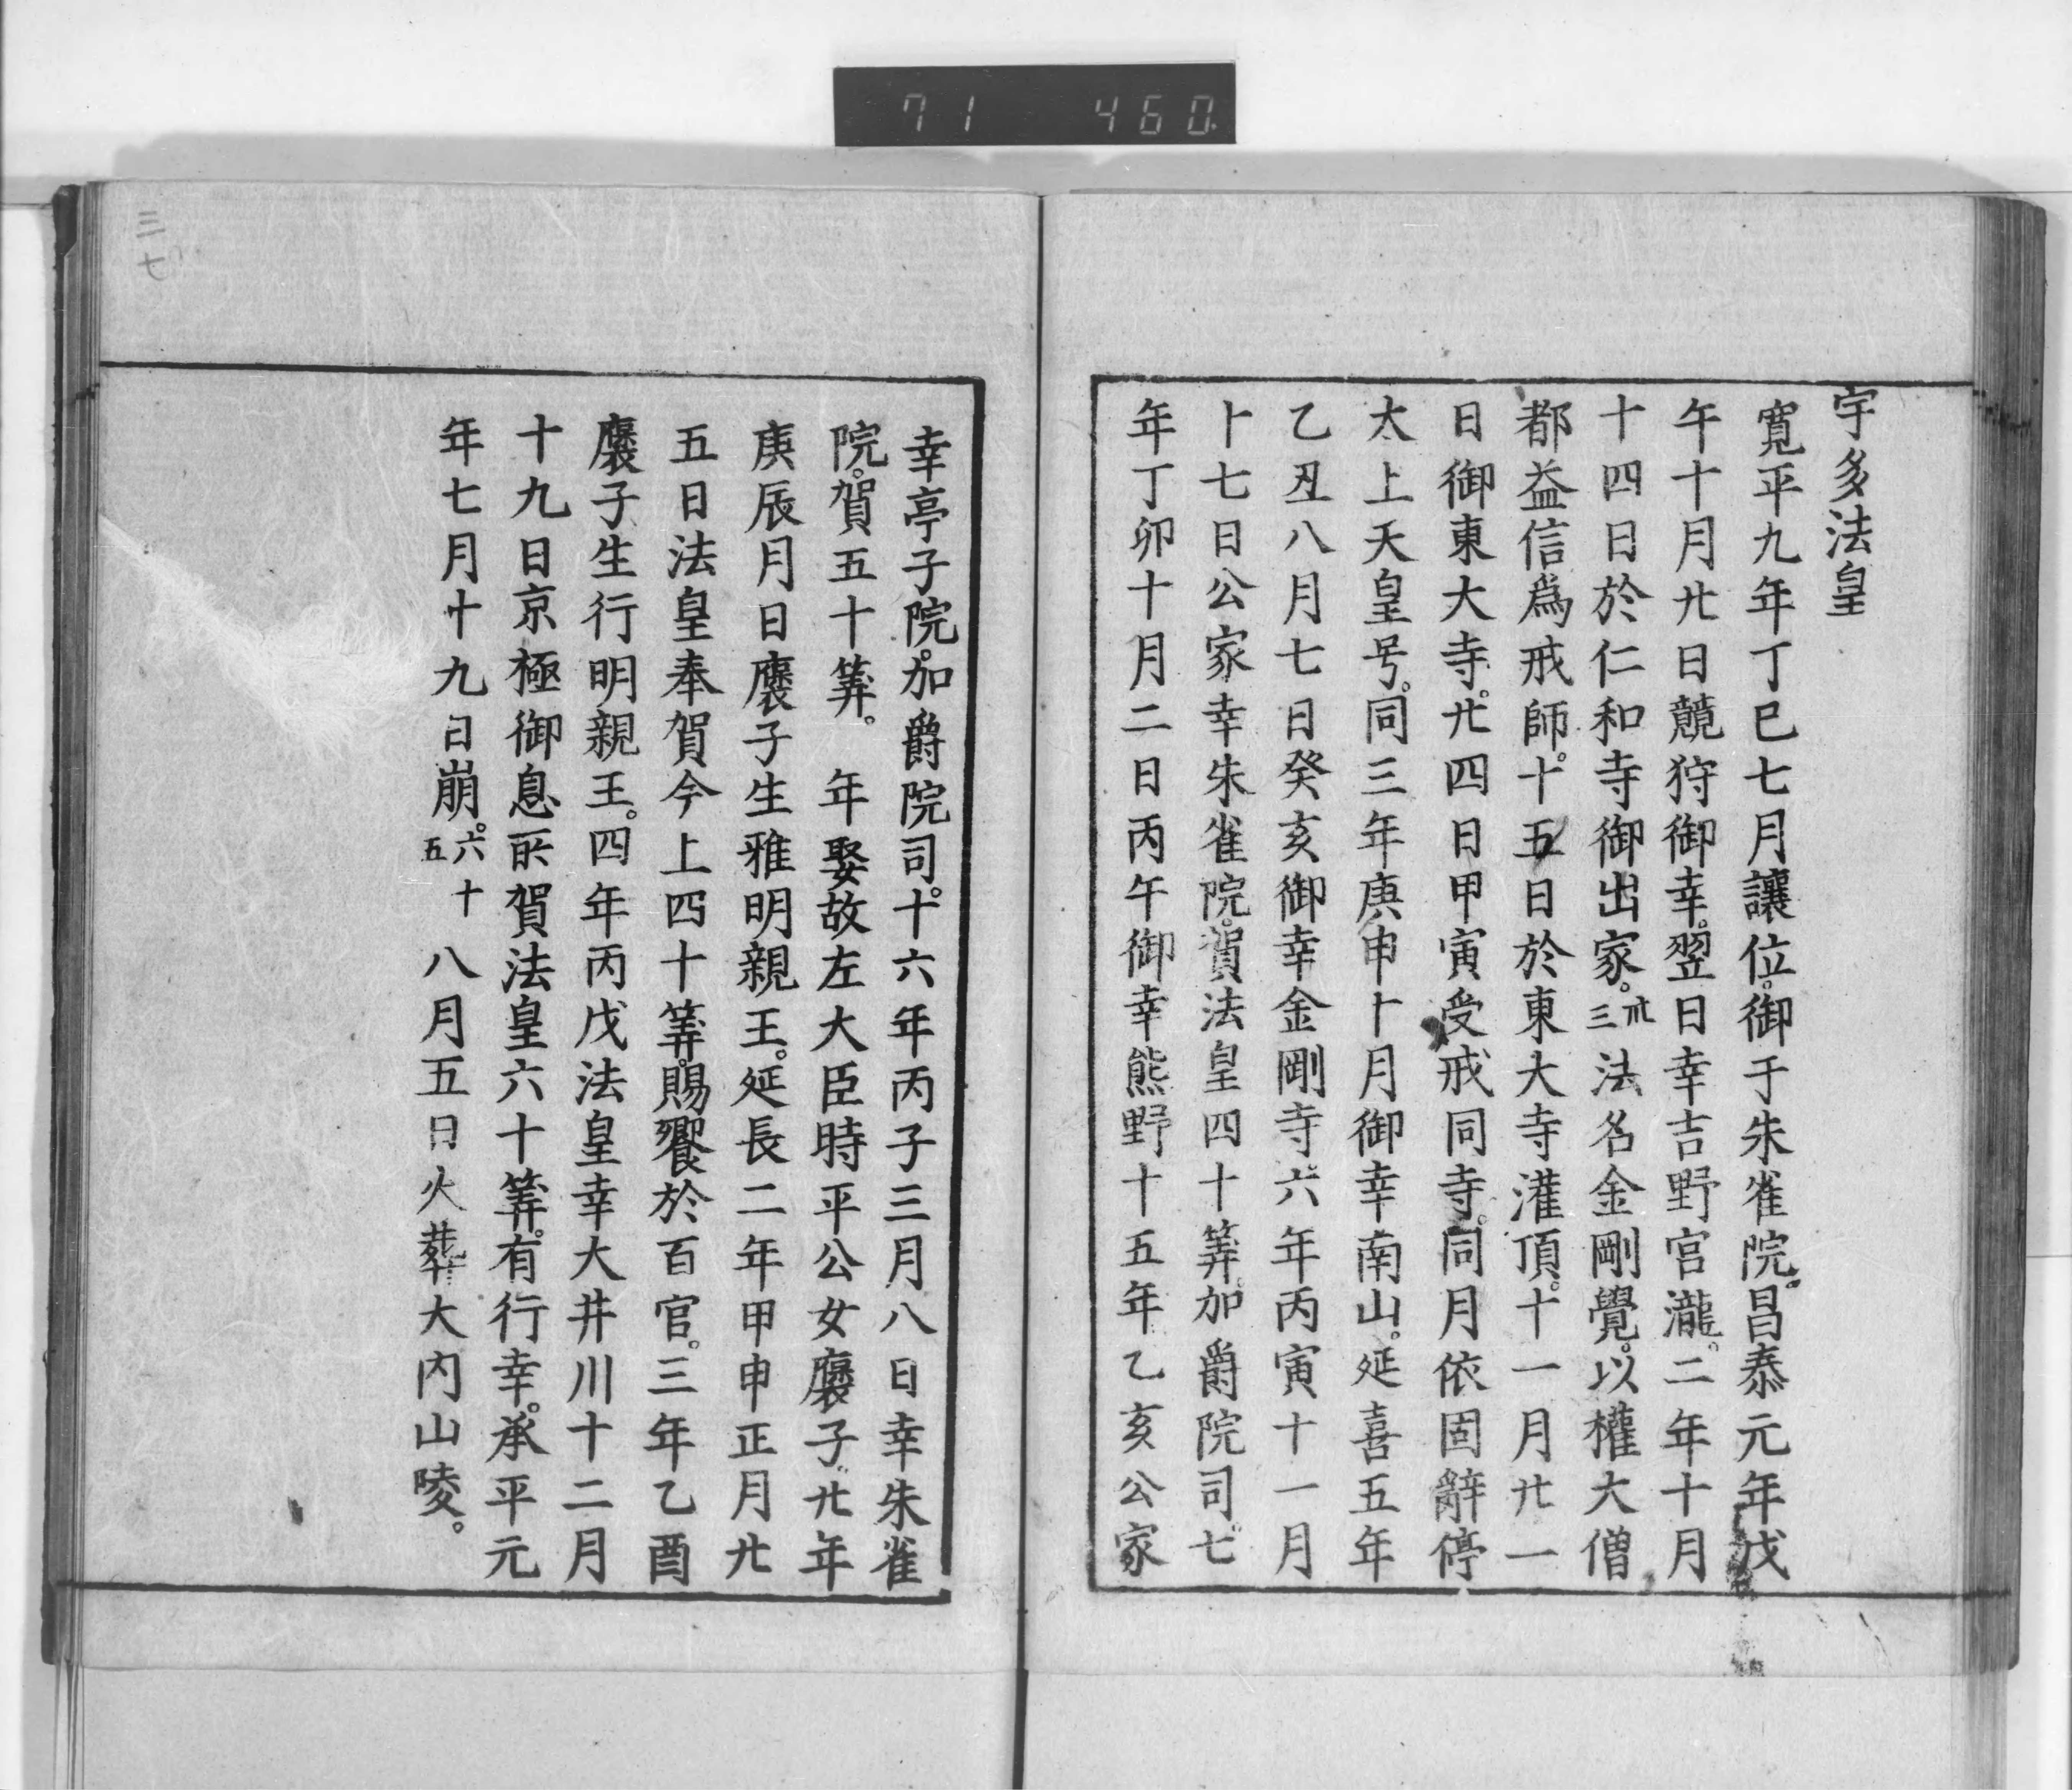 71 460
宇多法皇
寛平九年丁巳七月讓位。御于朱雀院。昌泰元年戊
午十月廿日競狩御幸。翌日幸吉野宮瀧。二年十月
十四日於仁和寺御出家。卅三法名金剛覺。以權大僧
都益信爲戒師。十五日於東大寺灌頂。十一月廿一
日御東大寺。廿四日甲寅受戒同寺。同月依固辭停
太上天皇号。同三年庚申十月御幸南山。延喜五年
乙丑八月七日癸亥御幸金剛寺。六年丙寅十一月
十七日公家幸朱雀院。賀法皇四十筭。加爵院司。七
年丁卯十月二日丙午御幸熊野十五年乙亥公家
幸亭子院。加爵院司。十六年丙子三月八日幸朱雀
院。賀五十筭。 年娶故左大臣時平公女褒子。廿年
庚辰月日褒子生雅明親王。延長二年甲申正月廿
五日法皇奉賀今上四十筭。賜饗於百官。三年乙酉
褒子生行明親王。四年丙戌法皇幸大井川十二月
十九日京極御息所賀法皇六十筭。有行幸。承平元
年七月十九日崩。六十五 八月五日火葬大内山陵。
三七